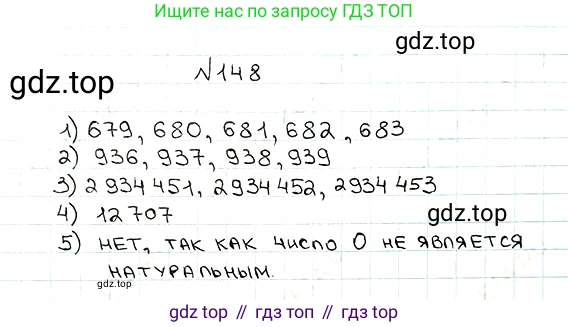 Ищите нас по запросу ГДЗ ТОП
gdz.top
№148
gdz.top
1) 679, 680, 681, 682, 683
2) 936, 937, 938, 939
3) 2 934 451, 2 934 452, 2 934 453
4) 12 707
gdz.top
5) нет, так как число 0 не является
натуральным.
gdz.top
gdz top // гдз топ // gdz top